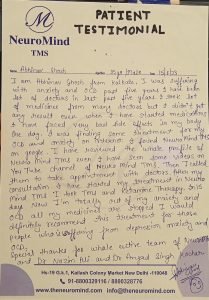 NeuroMind
TMS
PATIENT
TESTIMONIAL
Abhinav Ghosh
I am Abhinav Ghosh from Kolkata. I was suffering
with anxiety and OCD past five years I have been
lot of doctors in last past five years I took lot
of medicines from many doctors but i didn't get
any result even when I have started medications
I have faced very bad side effects in my body
One day, I was finding some treatment for my
OCD and anxiety on
on google I have the whole profile of
Neuro Mind TMS even I have seen some videos on
You Tube channel of Neuro Mind TMS. Then I called
them to make appointment with doctors. After my
consultation I have started my treatment in Neuro
Mind TMS I took TMS and Ketamine Therapy
days. Now I'm totally out of my anxiety and
OCD all my medicines are stopped I would
definitely recommend this treatment for those
people who suffering from depression, anxiety and
OCD.
Special thanks for whole entire team of
and Dr Nazim Ali and Dr Anjali Singh
Hs-19 G.F.1, Kailash Colony Market New Delhi -110048
T: +91-8800329116 - 8800328776
www.theneuromind.com | info@theneuromind.com